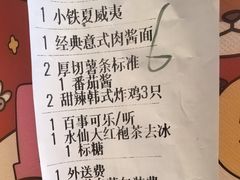 1 小铁夏威夷
1 经典意式肉酱面
2 厚切薯条标准
1 番茄酱
2 甜辣韩式炸鸡3只
1 百事可乐/听
1 水仙大红袍茶去冰
1 标糖
1 外送费
6